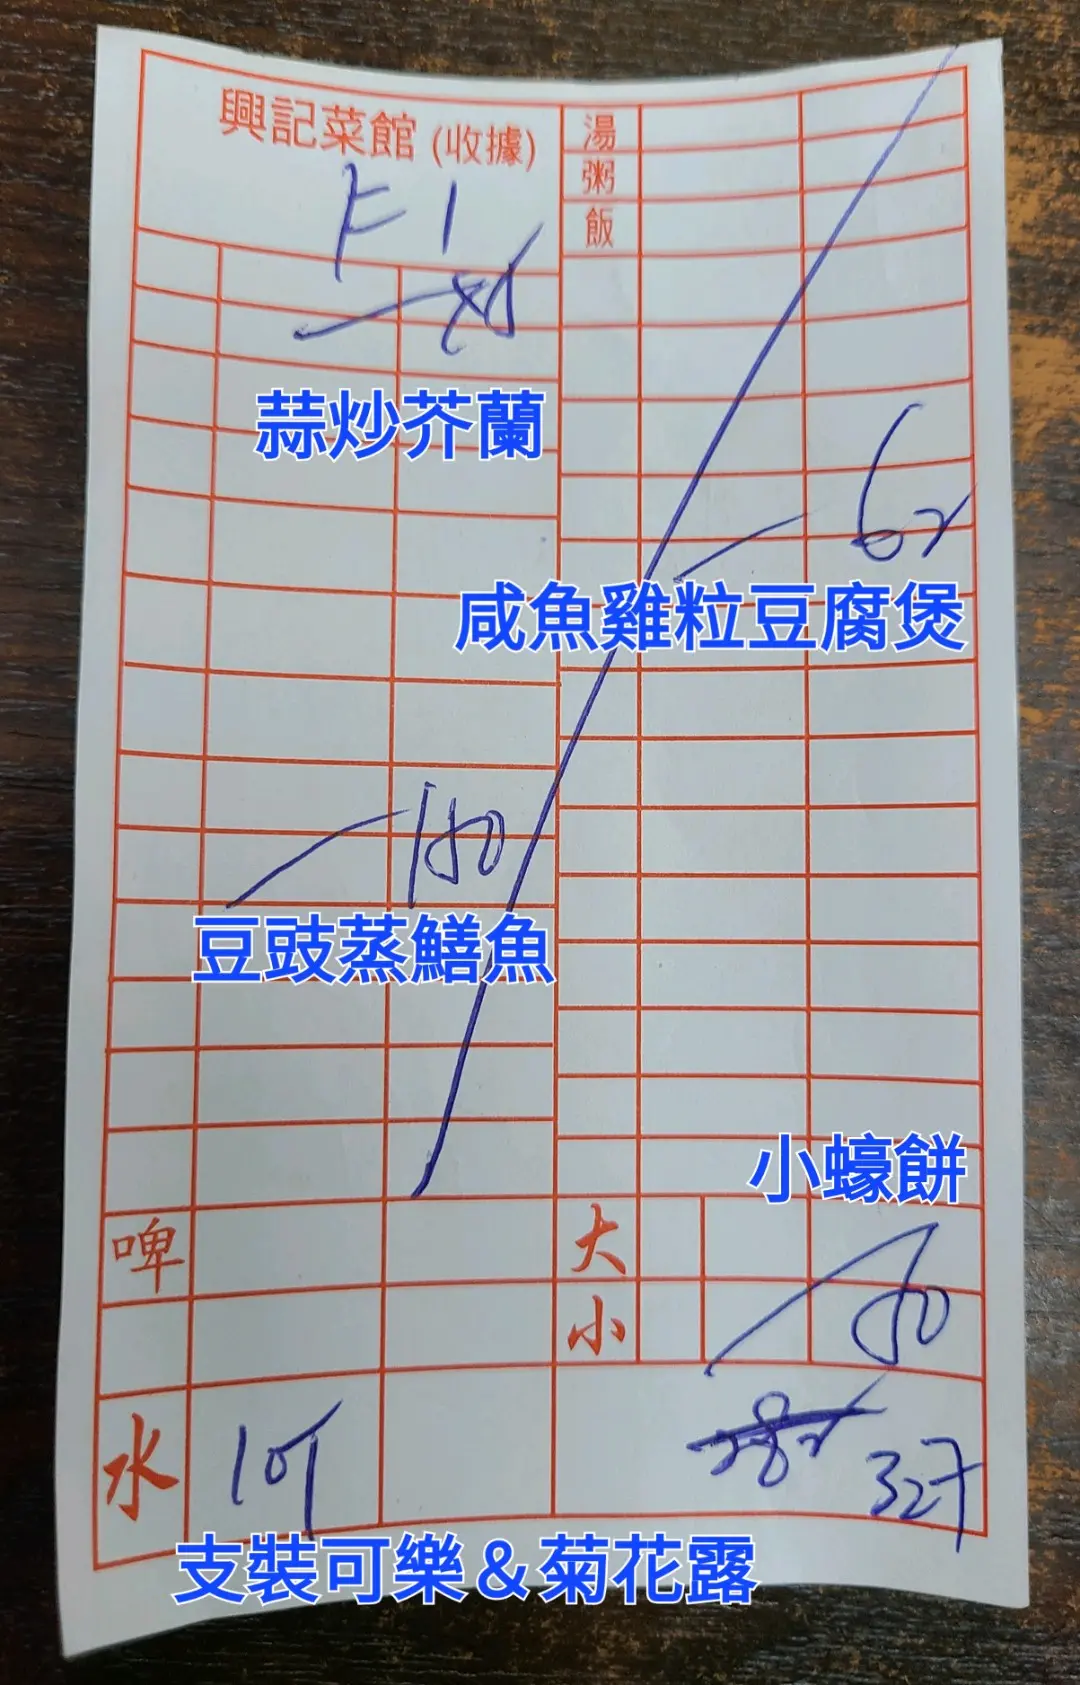 興記菜館 (收據)
湯
粥
飯
蒜炒芥蘭
62
咸魚雞粒豆腐煲
豆豉蒸鱔魚
小蠔餅
啤
大
小
水
327
支裝可樂＆菊花露